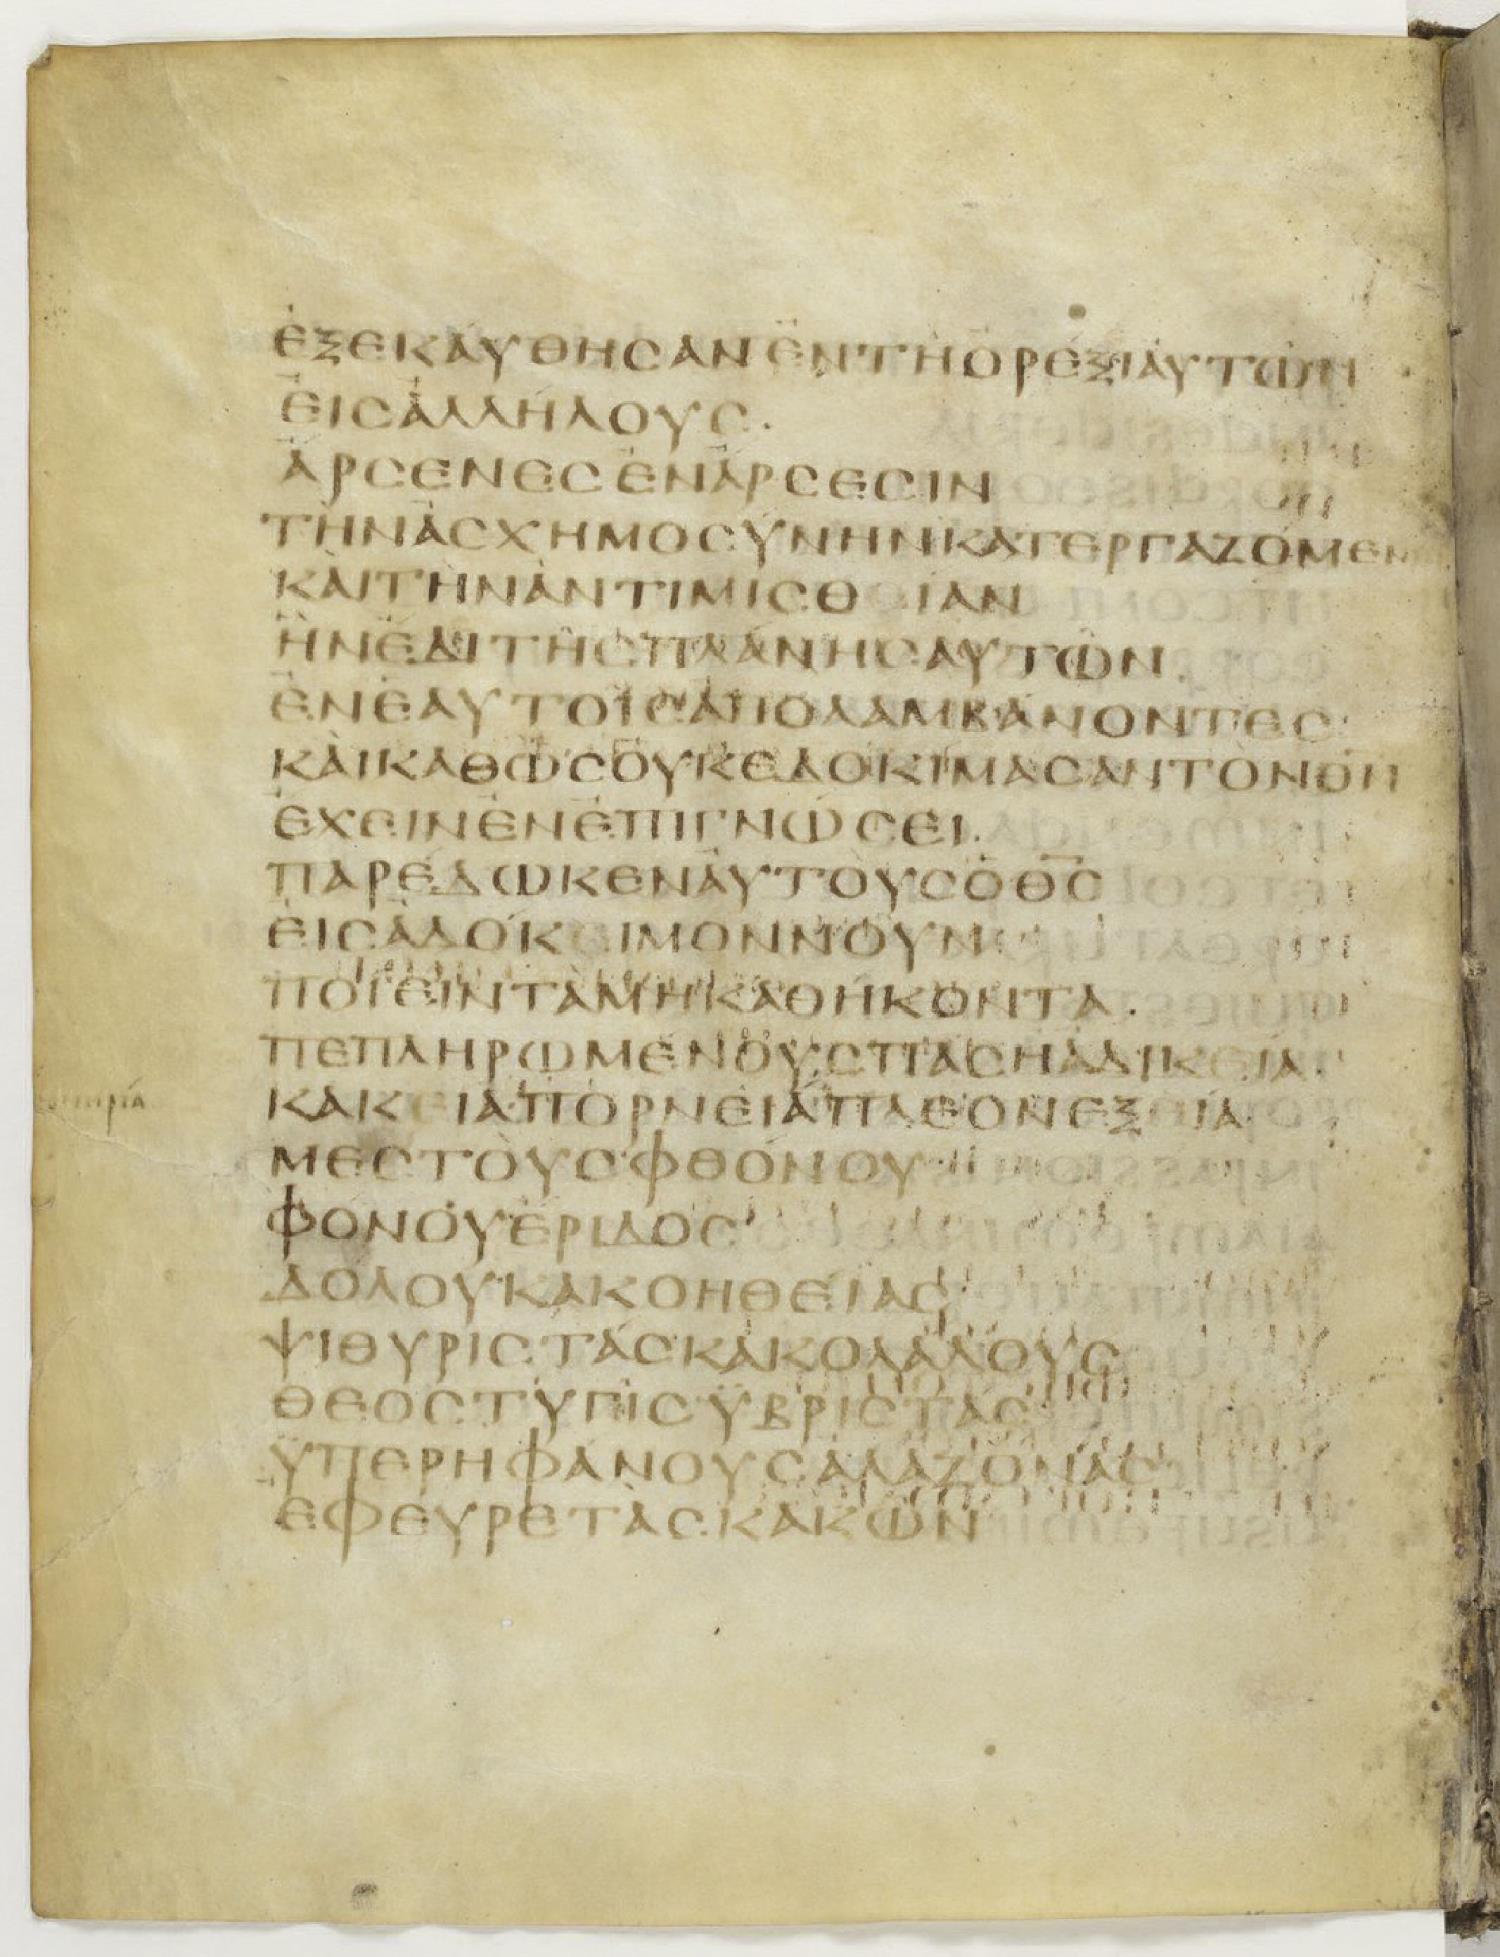 ἐξεκάυθησαν ἐν τῆ ὀρέξι ἀυτῶν
ἐις ἀλλήλους.
ἄρσενες ἐν ἄρσεσιν
τὴν ἀσχημοσύνην κατεργαζόμεν
κὰι τὴν ἀντιμισθ ίαν
ἣν ἔδι τῆς πλάνης αυτῶν.
ἐν ἑαυτοῖς ἀπολαμβάνοντες
κὰι καθὼς ὀυκ εδοκίμασαν τὸν θ̅ν̅
ἔχειν ἐν ἐπιγνώσει.
παρέδωκεν ἀυτοὺς ὁ θ̅ς̅
ἐις ἀδόκειμον νοῦν
ποιεῖν τὰ μὴ καθήκοντα.
πεπληρωμένους πάση ἀδικεία.
κακεια πορνεία πλεονεξία
μεστοὺς φθόνου
φόνου ἔριδος
δόλου κακοηθείας
ψιθυριστάς κακολάλους
θεοστυγῖς ὑβριστάς
ὑπερηφάνους ἀλαζόνας
εφευρετὰς κακῶν